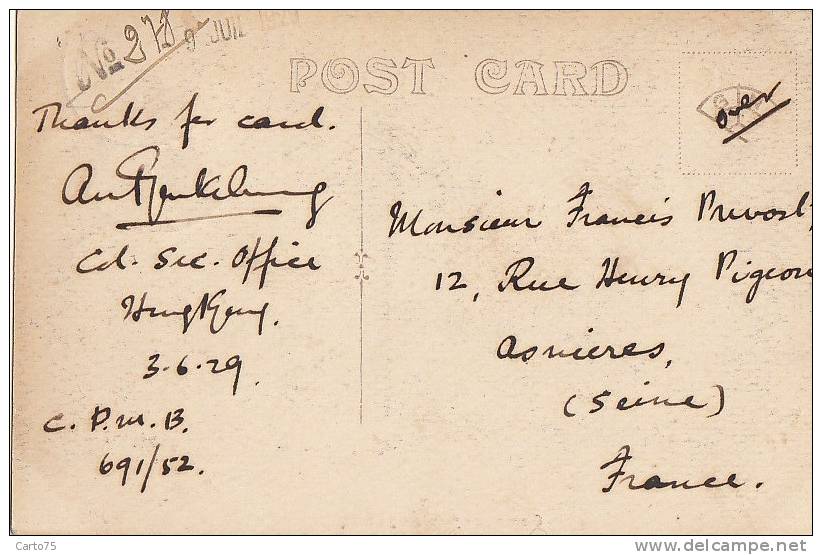 No 278
9 JUIL 1929
POST CARD
over
Thanks for card.
Col. Sec. Office
HongKong.
3.6.29
C. P. M. B.
691/52.
Monsieur Francis Prevost,
12, Rue Henry Pigeon
Asnieres,
(Seine)
France.
Carto75
www.delcampe.net